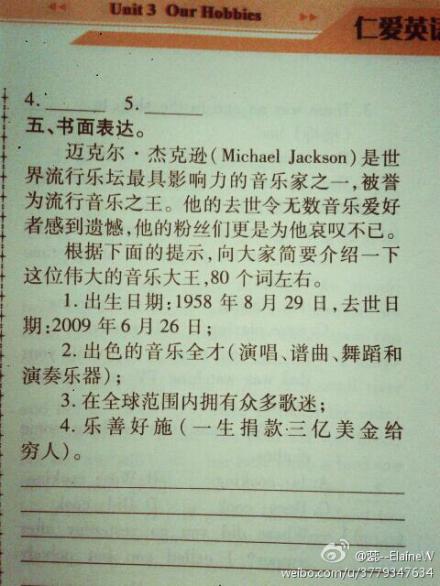 Unit 3 Our Hobbies
仁爱英语
4. 5.
五、书面表达。
迈克尔·杰克逊(Michael Jackson)是世
界流行乐坛最具影响力的音乐家之一,被誉
为流行音乐之王。他的去世令无数音乐爱好
者感到遗憾,他的粉丝们更是为他哀叹不已。
根据下面的提示,向大家简要介绍一下
这位伟大的音乐大王,80个词左右。
1. 出生日期:1958年8月29日,去世日
期:2009年6月26日;
2. 出色的音乐全才(演唱、谱曲、舞蹈和
演奏乐器);
3. 在全球范围内拥有众多歌迷;
4. 乐善好施(一生捐款三亿美金给
穷人)。
weibo.com/u/3779347634